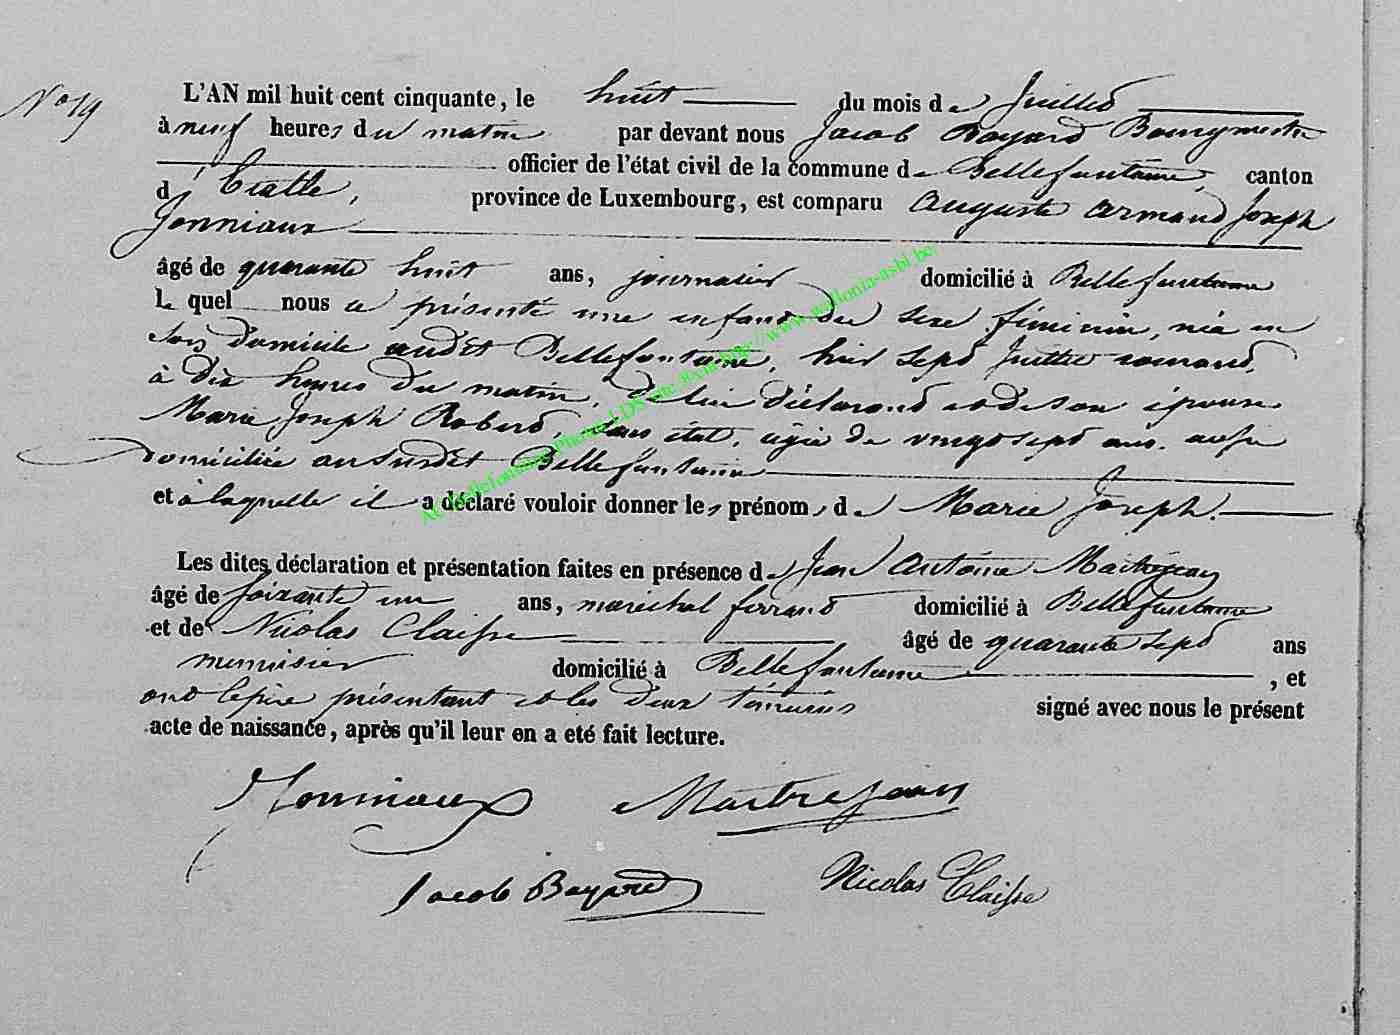 No 19
L'AN mil huit cent cinquante, le huit du mois de Juillet
à neuf heures du matin par devant nous Jacob Bayard Bourgmestre
officier de l'état civil de la commune de Bellefontaine, canton
d'Etalle, province de Luxembourg, est comparu Auguste Armand Joseph
Jonniaux
âgé de quarante huit ans, journalier domicilié à Bellefontaine
Lequel nous a présenté une enfant du sexe féminin, née en
son domicile audit Bellefontaine, hier sept Juillet courant,
à dix heures du matin, de lui déclarant et de son épouse
Marie Joseph Robert, sans état, agée de vingt sept ans, aussi
domiciliée au susdit Bellefontaine
et à laquelle il a déclaré vouloir donner les prénoms de Marie Joseph.
Les dites déclaration et présentation faites en présence de Jean Antoine Maitrejean
âgé de soixante un ans, maréchal ferrant domicilié à Bellefontaine
et de Nicolas Claisse âgé de quarante sept ans
menuisier domicilié à Bellefontaine, et
ont le père présentant et les deux témoins signé avec nous le présent
acte de naissance, après qu'il leur en a eté fait lecture.
Jonniaux Maitrejean
Jacob Bayard Nicolas Claisse
http://www.wallonia-asbl.be